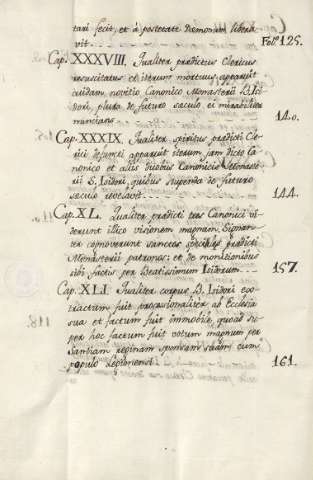 tari fecit, et à potestate Dæmonum libera
vit. Fol. 125.
Cap. XXXVIII. Qualiter prædictus Clericus
resuscitatus et iterum mortuus apparuit
cuidam novitio Canonico Monasterii B. Isi
dori, plura de futuro seculo ei mirabilia
nuncians. 140.
Cap. XXXIX. Qualiter spiritus prædicti Cle
rici defuncti apparuit iterum jam dicto Ca
nonico et aliis duobus Canonicis Monaste
rii S. Isidori, quibus stupenda de futuro
seculo revelavit. 144.
Cap. XL. Qualiter prædicti tres Canonici vi
derunt illico visionem magnam, signan
ter cognoverunt sanctos speciales prædicti
Monasterii patronos; et de monitionibus
sibi factis per Beatissimum Isidorum. 157.
Cap. XLI. Qualiter corpus B. Isidori ex
tractum fuit processionaliter ab Ecclesia
sua et factum fuit immobile, quoad us
per hoc factum fuit votum magnum per
Sanctiam reginam sponsam suam cum
populo Legionensi. 161.